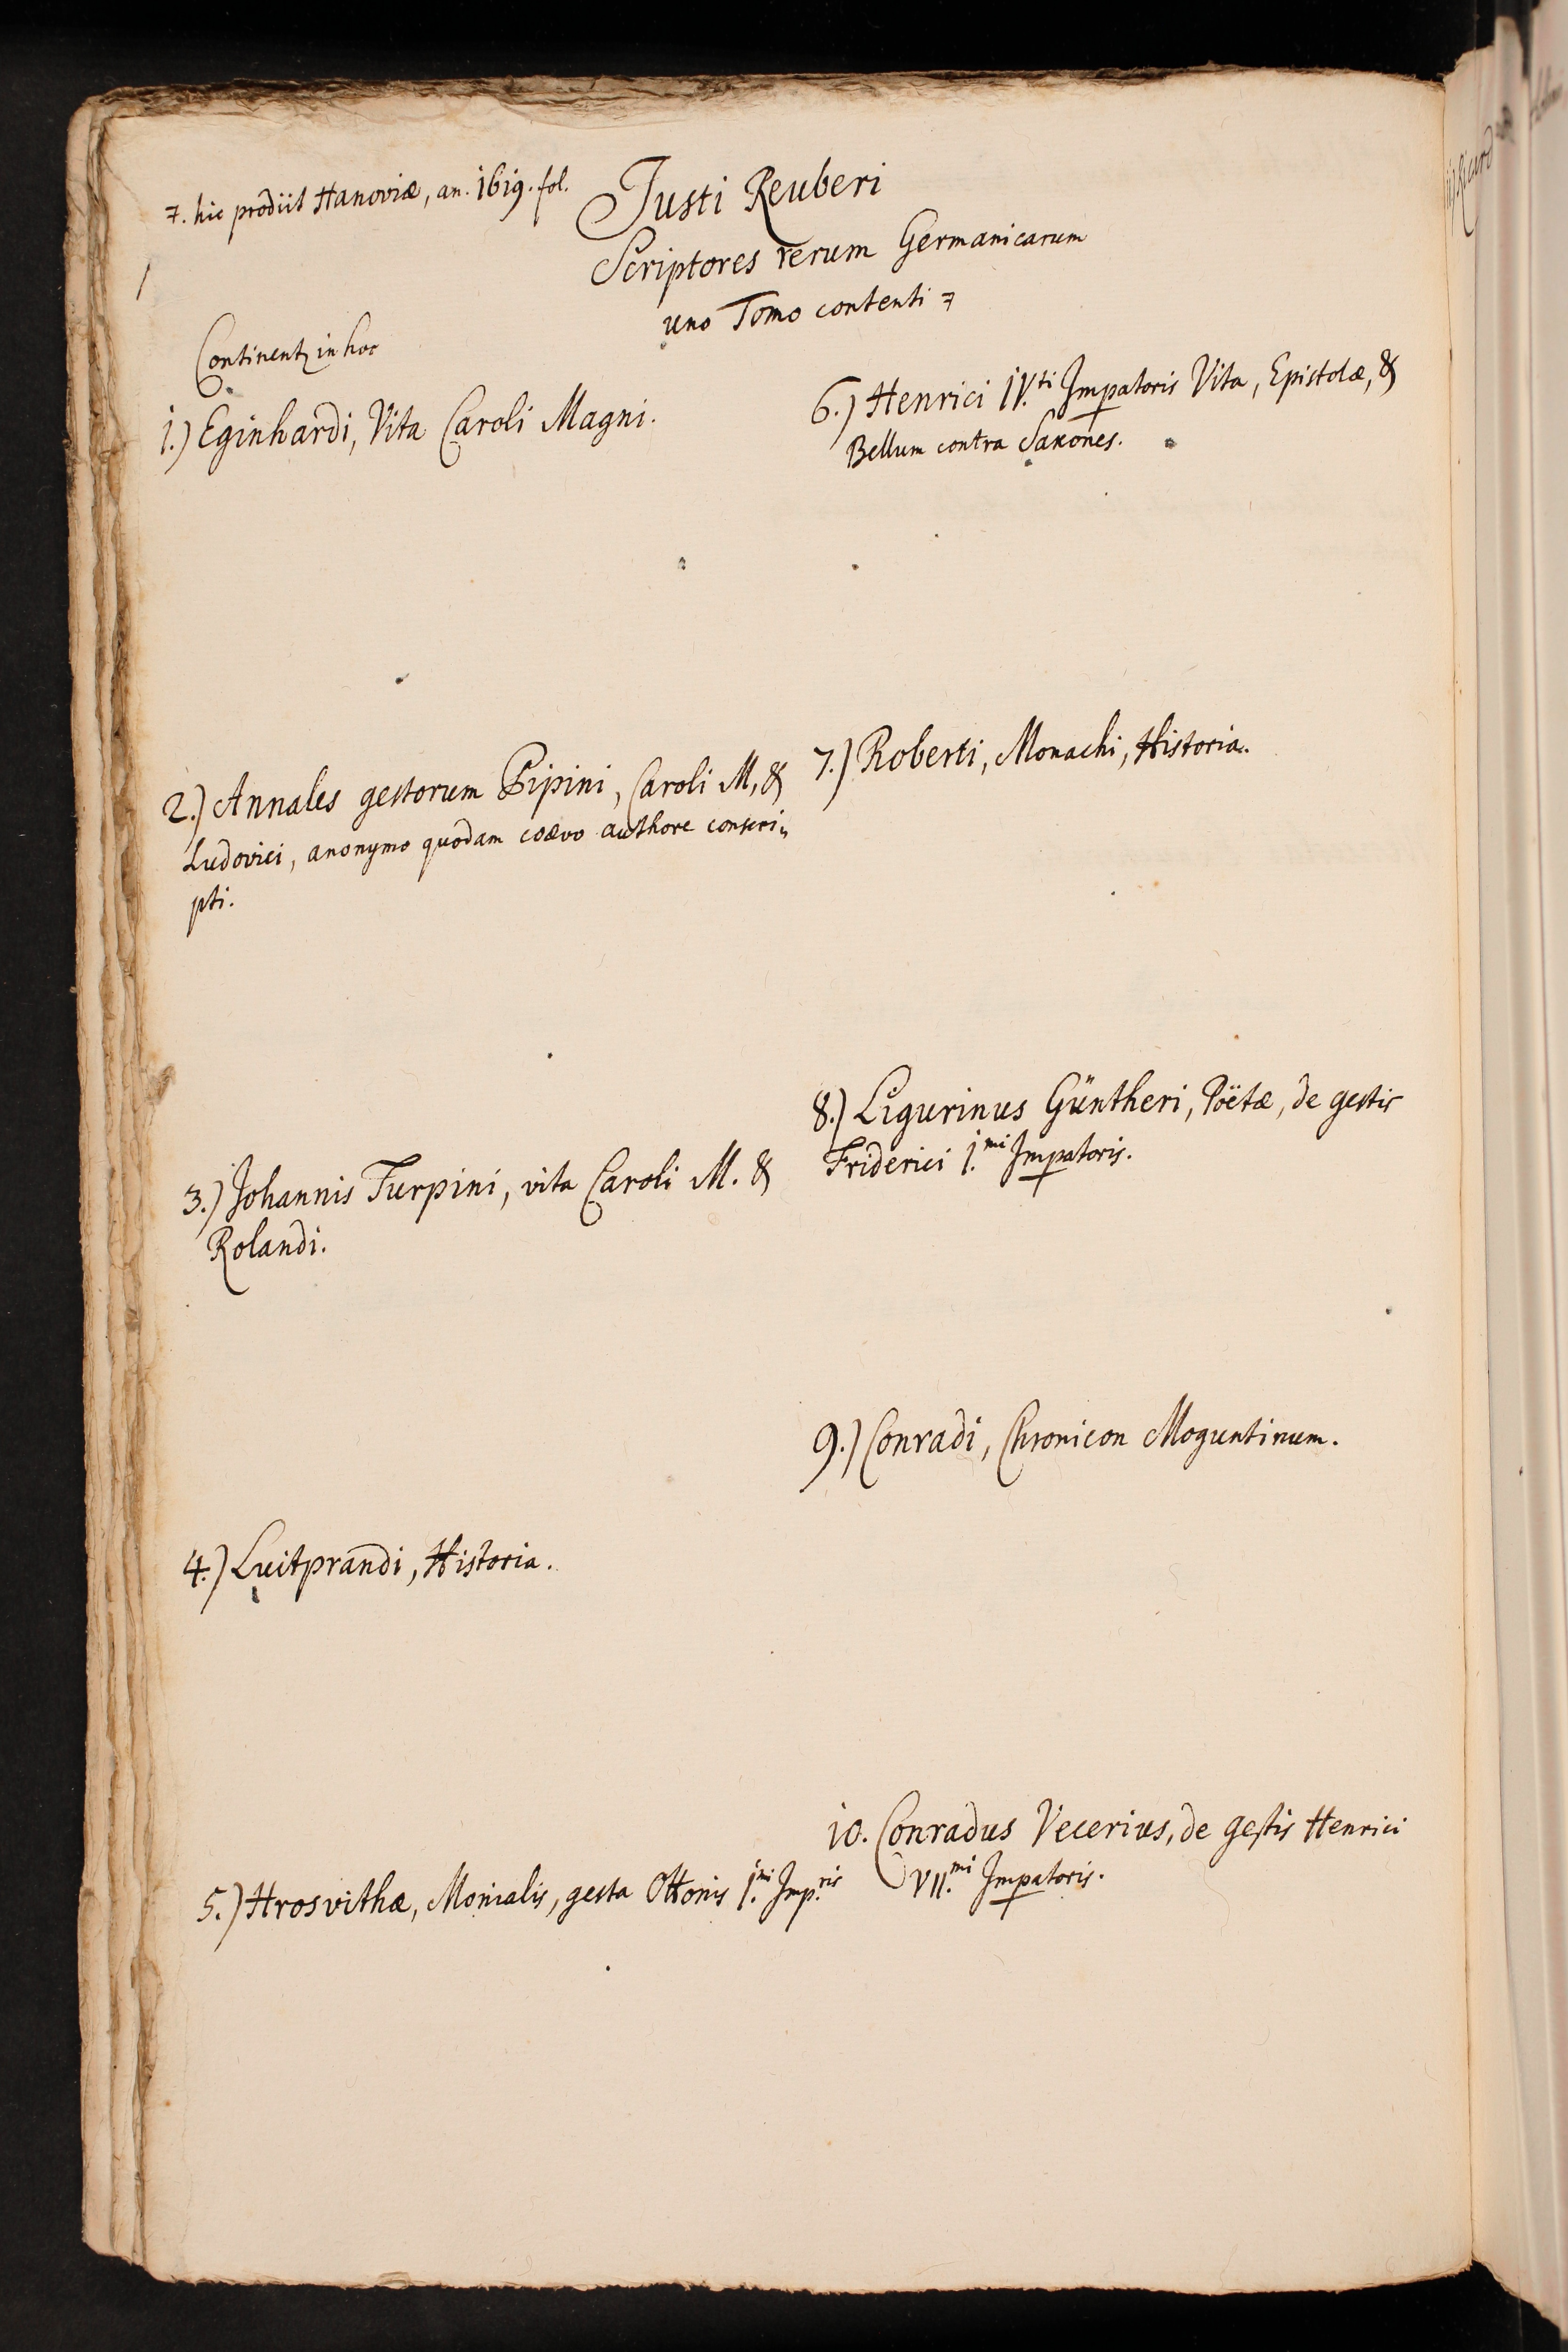 7. hic prodiit Hanoviæ, an. 1619. fol.
Justi Reuberi
Scriptores rerum Germanicarum
uno Tomo contenti 7
Continent in hoc
1.) Eginhardi, Vita Caroli Magni.
2.) Annales gestorum Pipini, Caroli M, &
Ludovici, anonymo quodam coævo authore conscri„
pti.
3.) Johannis Turpini, vita Caroli M. &
Rolandi.
4.) Luitprandi, Historia.
5.) Hrosvithæ, Monialis, gesta Ottonis I.mi Imp.ris
6.) Henrici IV.ti Impatoris Vita, Epistolæ, &
Bellum contra Saxones.
7.) Roberti, Monachi, Historia.
8.) Ligurinus Güntheri, Poëtæ, de gestis
Friderici I.mi Impatoris.
9.) Conradi, Chronicon Moguntinum.
10. Conradus Vecerius, de gestis Henrici
VII.mi Impatoris.